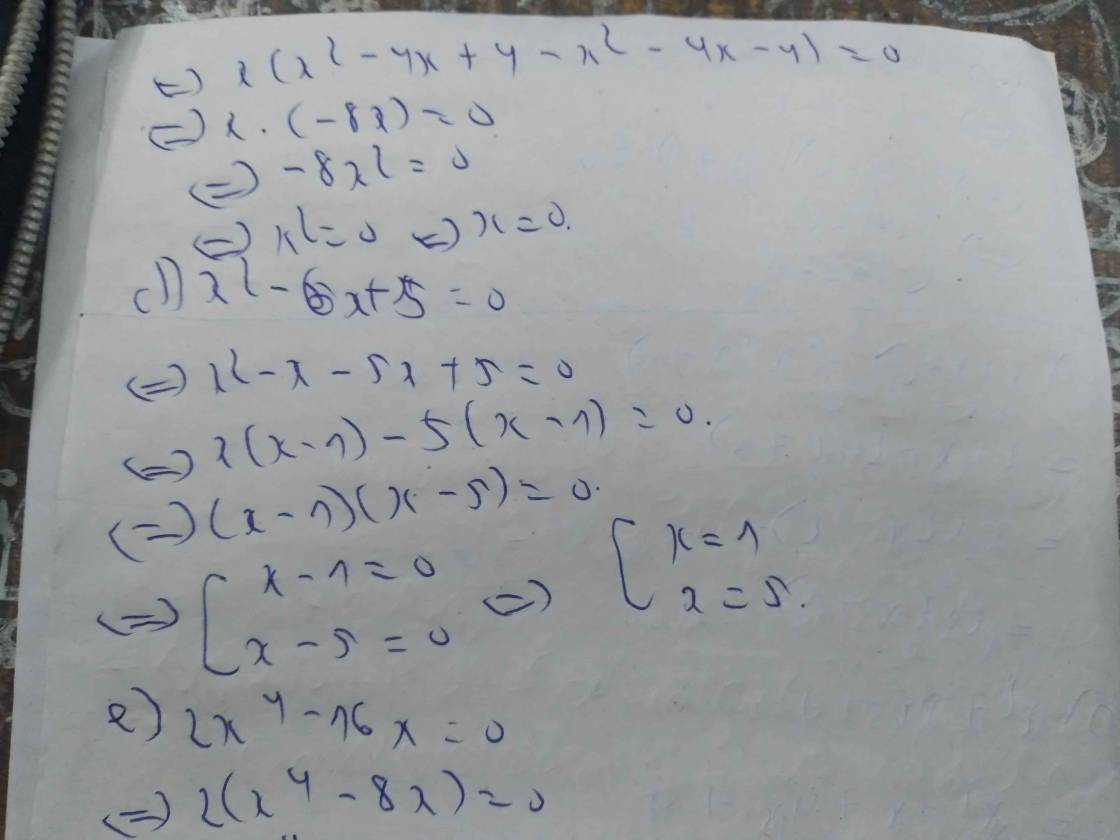 ⇔ x(x² - 4x + 4 - x² - 4x - 4) = 0
⇔ x . (-8x) = 0
⇔ -8x² = 0
⇔ x² = 0 ⇔ x = 0.
d) x² - 6x + 5 = 0
⇔ x² - x - 5x + 5 = 0
⇔ x(x - 1) - 5(x - 1) = 0.
⇔ (x - 1)(x - 5) = 0.
⇔ [ x - 1 = 0 ⇔ [ x = 1
x - 5 = 0 x = 5.
e) 2x⁴ - 16x = 0
⇔ 2(x⁴ - 8x) = 0